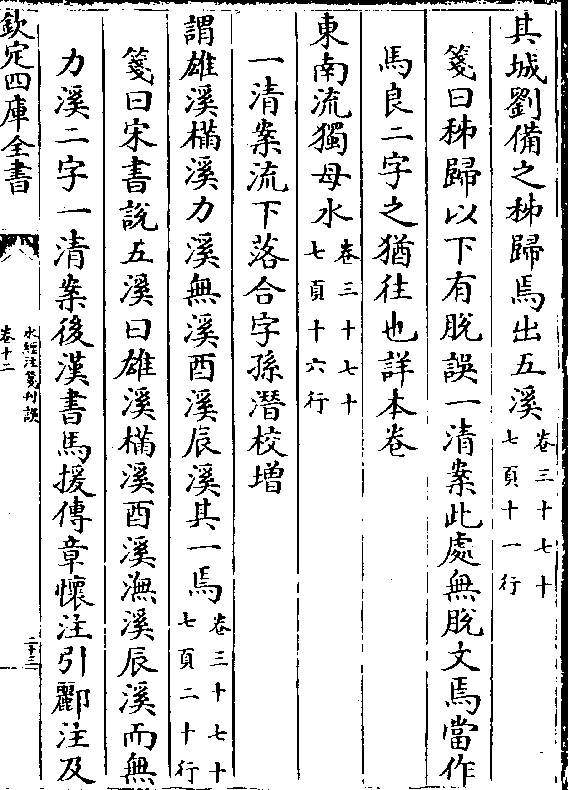 其城劉備之秭歸馬出五溪卷三十七十七頁十一行
箋曰秭歸以下有脫誤一清案此處無脫文馬當作
馬良二字之猶往也詳本卷
東南流獨母水卷三十七十七頁十六行
一清案流下落合字孫潛校增
謂雄溪樠溪力溪無溪酉溪辰溪其一焉卷三十七十七頁二十行
箋曰宋書說五溪曰雄溪樠溪酉溪潕溪辰溪而無
力溪二字一清案後漢書馬援傳章懷注引酈注及
欽定四庫全書
水經注箋刊誤
卷十二
二十三